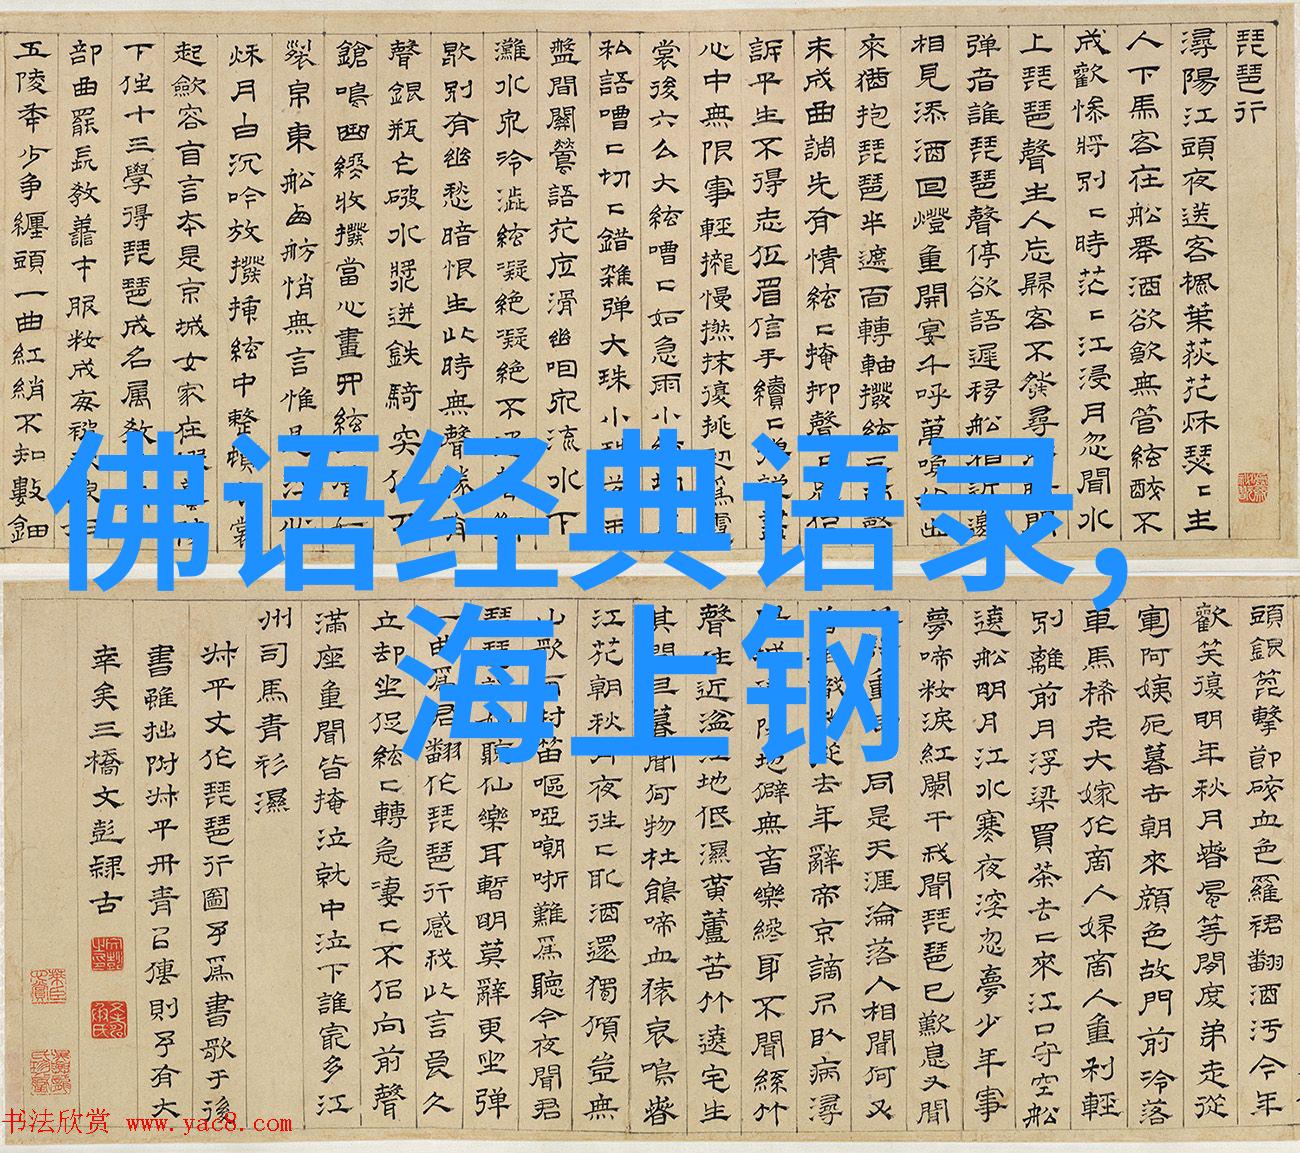 琵琶行
潯陽江頭夜送客楓葉荻花秋瑟〻主
人下馬客在船舉酒欲飲無管絃醉不
成歡慘將別〻時茫〻江浸月忽聞水
上琵琶聲主人忘歸客不發尋
彈者誰琵琶聲停欲語遲移船相近邀
相見添酒回燈重開宴千呼萬喚始出
來猶抱琵琶半遮面轉軸撥絃三
未成曲調先有情絃〻掩抑聲
訴平生不得志低眉信手續〻
心中無限事輕攏慢撚抹復挑
裳後六么大絃嘈〻如急雨小絃
私語嘈〻切〻錯雜彈大珠小
盤間關鶯語花底滑幽咽泉流水下
灘水泉冷澁絃凝絕凝絕不
歇別有幽愁暗恨生此時無聲勝有
聲銀瓶乍破水漿迸鉄騎突
鎗鳴曲終收撥當心畫四絃
裂帛東船西舫悄無言惟見
秋月白沉吟放撥插絃中整頓
起斂容自言本是京城女家在
下住十三學得琵琶成名屬教
部曲罷長教善才服粧成每被
五陵年少爭纏頭一曲紅綃不知數鈿
佛语经典语录,
海上钢
頭銀篦擊節碎血色羅裙翻酒污今年
歡笑復明年秋月春風等閒度弟走從
軍阿姨死暮去朝來顏色故門前冷落
車馬稀老大嫁作商人婦商人重利輕
別離前月浮梁買茶去〻來江口守空船
遶船明月江水寒夜深忽夢少年事
夢啼粧淚紅闌干我聞琵琶已歎息又聞
同是天涯淪落人相聞何必
去年辭帝京謫居臥病潯
地僻無音樂終年不聞絲竹
聲住近湓江地低濕黃蘆苦竹遶宅生
其間旦暮聞何物杜鵑啼血猿哀鳴春
江花朝秋月夜往〻取酒還獨傾豈無
山歌與村笛嘔啞嘲哳難為聽今夜聞君
琵琶語如聽仙樂耳暫明莫辭更坐彈
一曲為君翻作琵琶行感我此言良久
立却坐促絃〻轉急淒〻不似向前聲
滿座重聞皆掩泣就中泣下誰寂多江
州司馬青衫濕
叔平丈作琵琶行圖予為書歌于後
書雖拙附叔平丹青以傳則予有大
幸矣三橋文彭隸古
书法欣赏 www.yac8.com